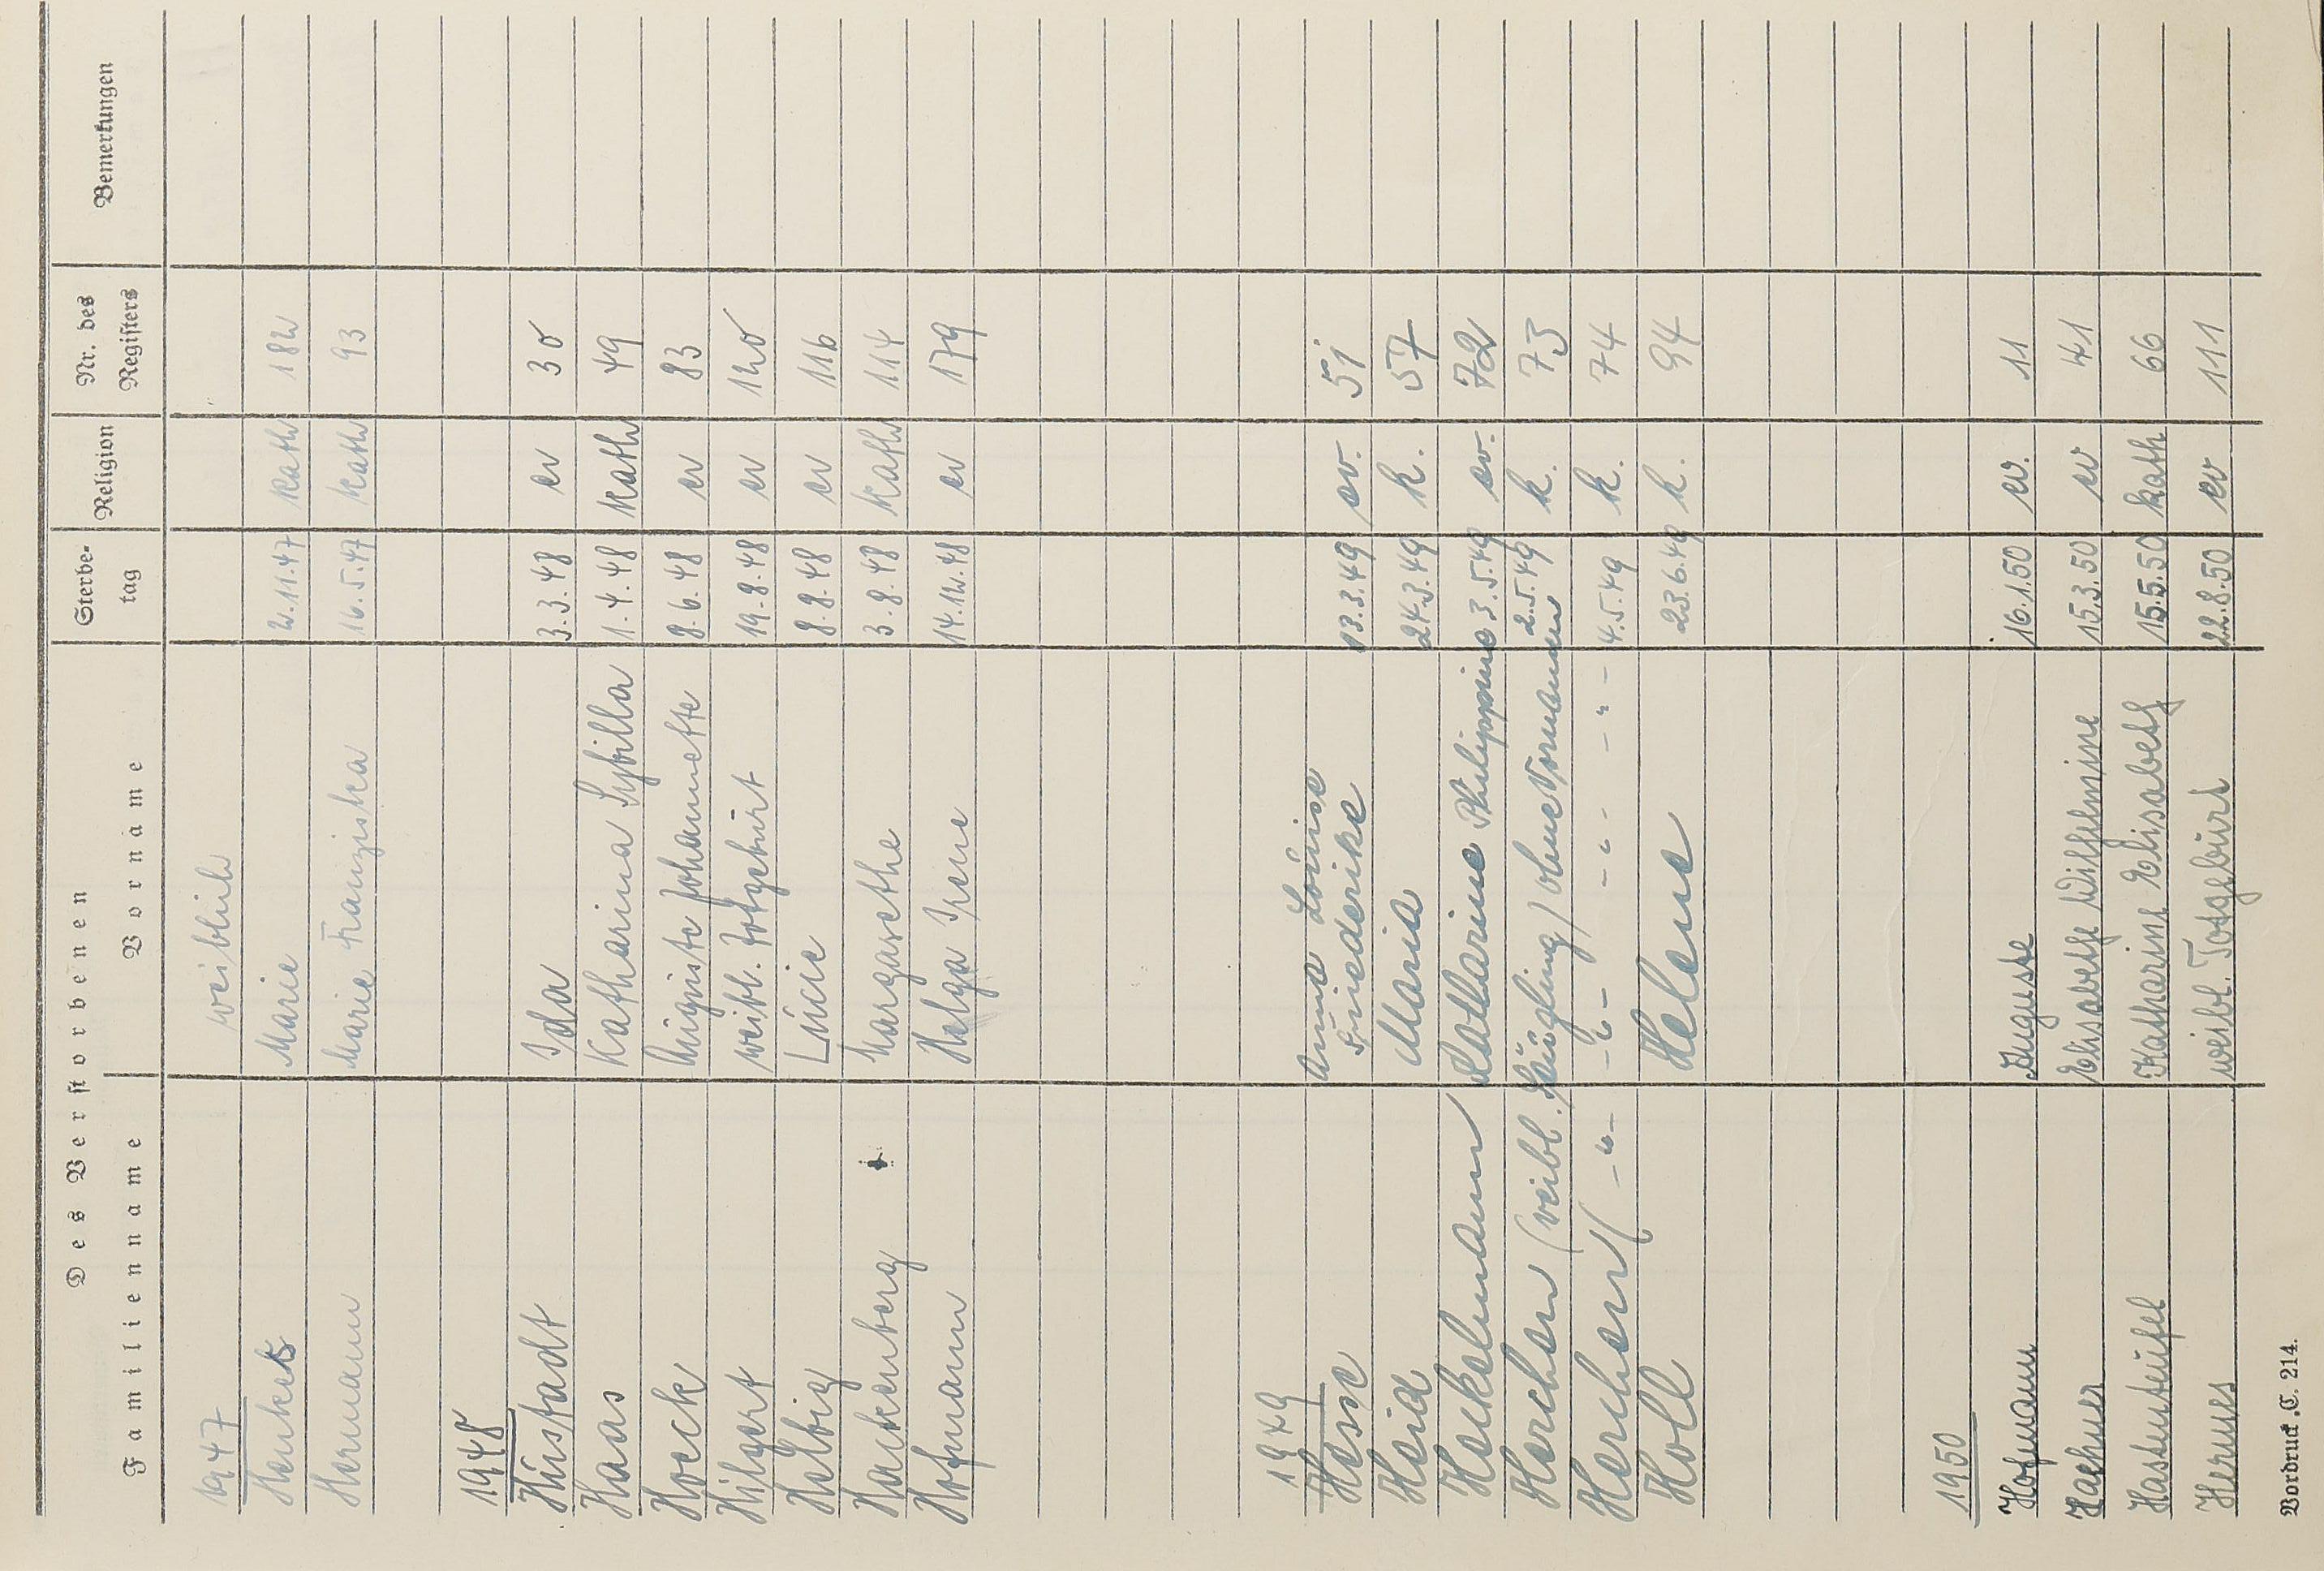 Des Verstorbenen
Familienname Vorname Sterbe-tag Religion Nr. des Registers Bemerkungen
1947 weiblich
Henkels Marie 2.11.47 kath 182
Hermann Marie Franziska 16.5.47 kath 93
1948
Hüstadt Ida 3.3.48 ev 30
Haas Katharina Sybilla 1.4.48 kath 49
Hoeck Auguste Johannette 8.6.48 ev 83
Hilgert weibl. Totgeburt 19.8.48 ev 120
Helbig Lucie 8.8.48 ev 116
Hackenberg Margarethe 3.8.48 kath 114
Hofmann Helga Irene 14.12.48 ev 179
1949
Hesse Anna Louise Friederike 13.3.49 ev. 51
Heid Maria 24.3.49 k. 57
Heckelmann Katharine Philippine 3.5.49 ev. 72
Herchen (weibl. Säugling) ohne Vornamen 2.5.49 k. 73
Herchen (-"- -"- -"- -"- 4.5.49 k. 74
Holl Helene 23.6.49 k. 94
1950
Hofmann Auguste 16.1.50 ev. 11
Haehner Elisabethe Wilhelmine 15.3.50 ev 41
Hasenteufel Katharine Elisabeth 15.5.50 kath 66
Hermes weibl. Totgeburt 22.8.50 ev 111
Vordruck C. 214.